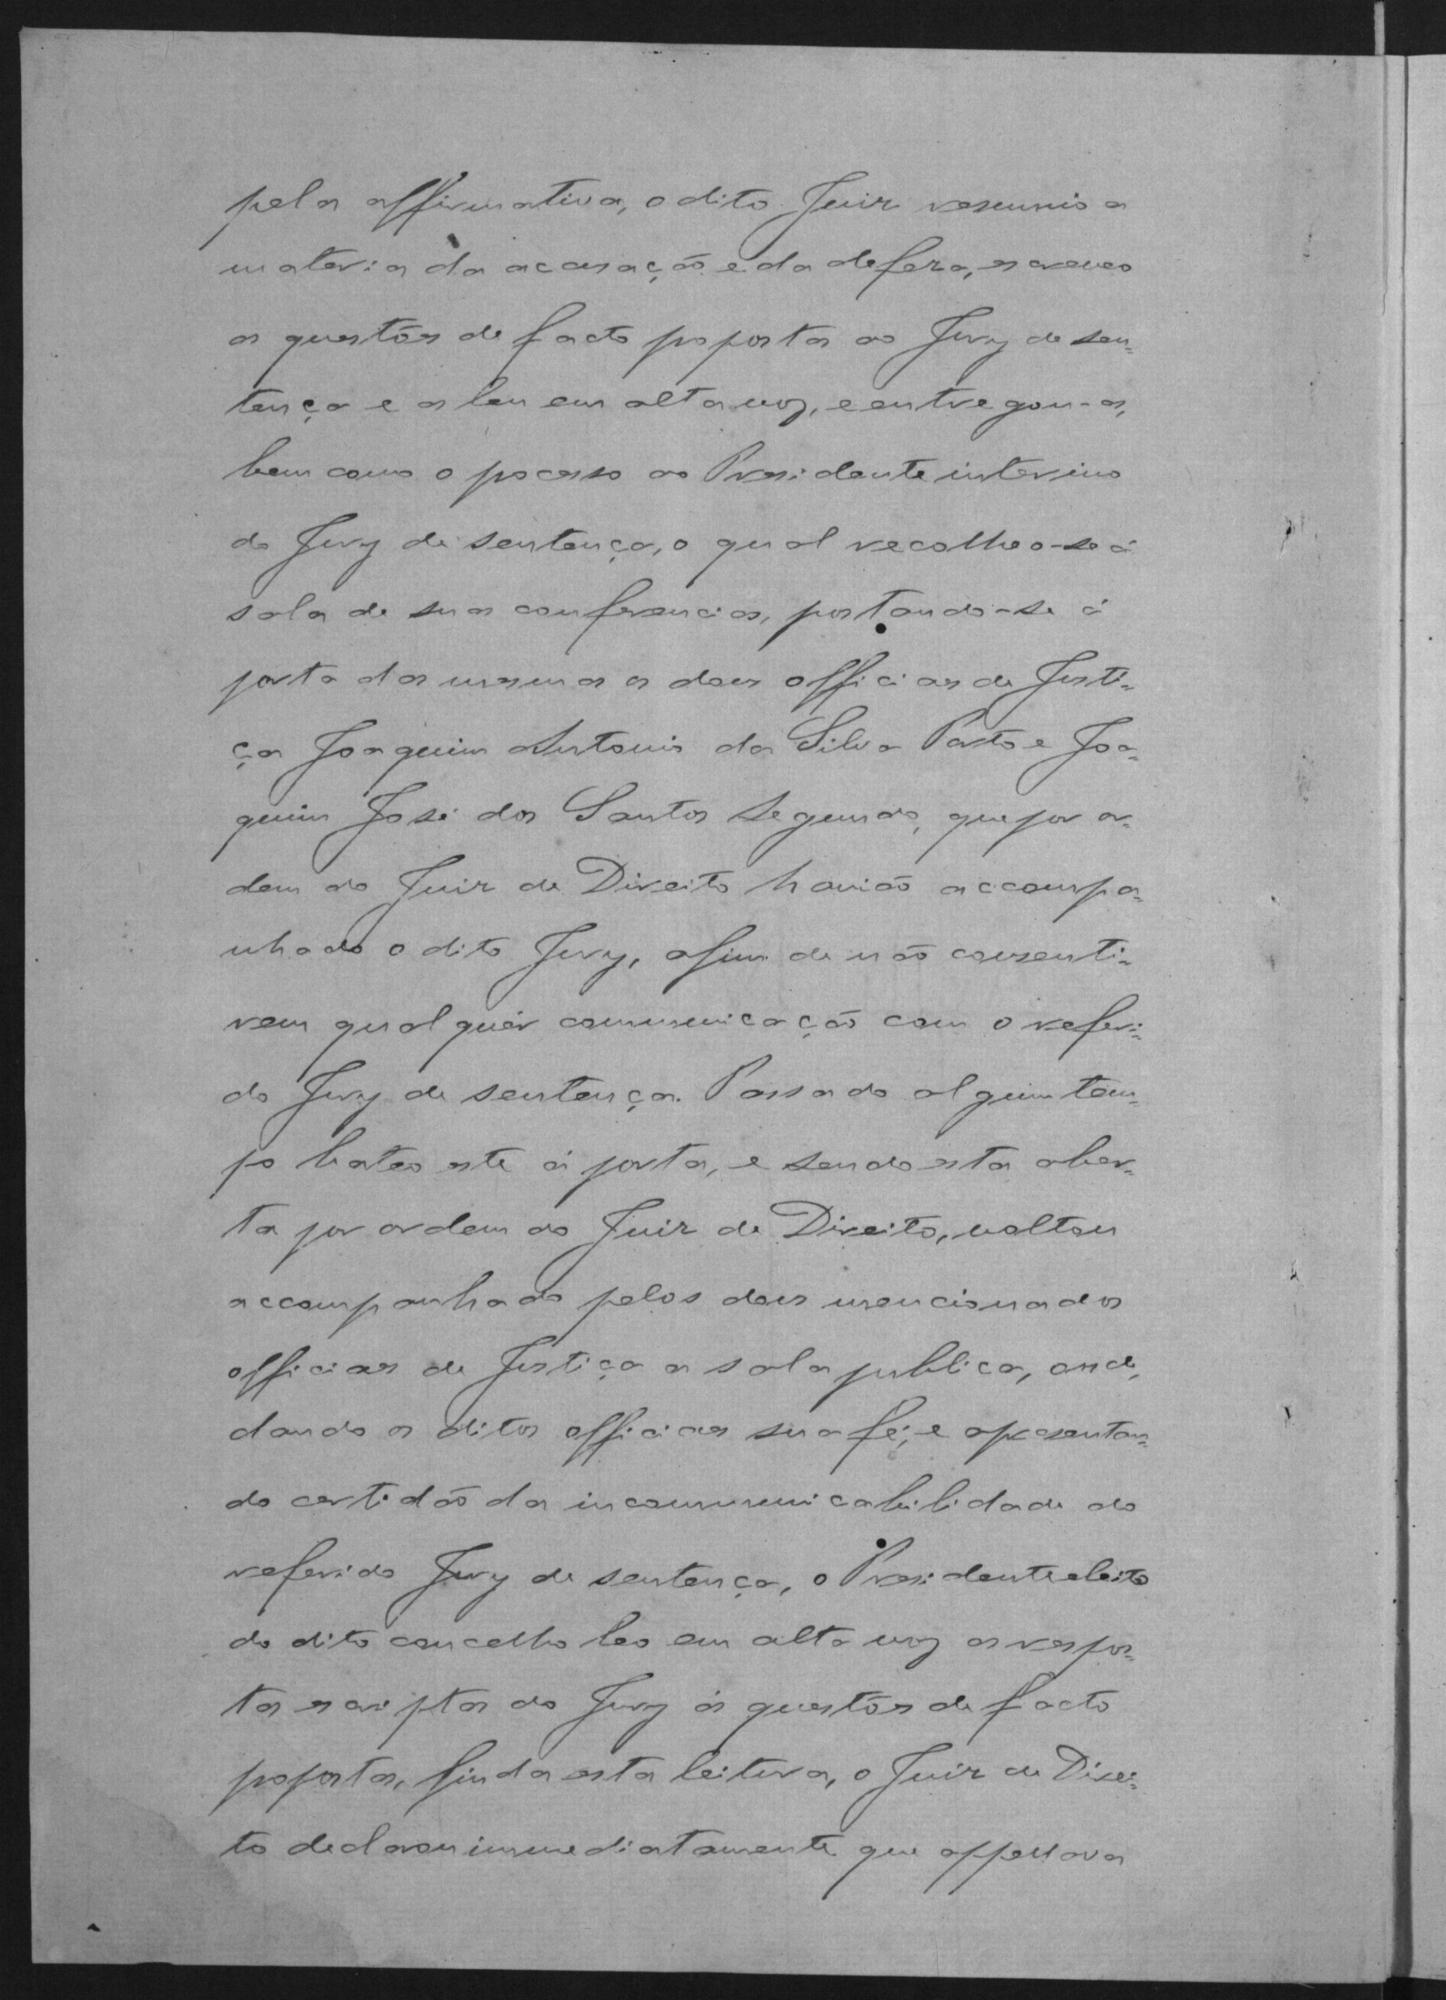 pela affirmativa, o dito Juiz resumio a
materia da acusação e da defeza, escreveo
as questões de facto propostas ao Jury de sen=
tença e as leu em alta voz, e entregou-as,
bem como o processo ao Presidente interino
do Jury de sentença, o qual recolheo-se á
sala de suas conferencias, postando-se á
porta das mesmas os dous officiaes de Justi=
ça Joaquim Antonio da Silva Porto e Joa=
quim José dos Santos Segundo, que por or=
dem do Juiz de Direito havião accompa=
nhado o dito Jury, afim de não consenti=
rem qualquér communicação com o referi=
do Jury de sentença. Passado algum tem=
po bateo este á porta, e sendo esta aber=
ta por ordem do Juiz de Direito, voltou
accompanhado pelos dous mencionados
officiaes de Justiça a sala publica, onde,
dando os ditos officiaes sua fé, e apresentan=
do certidão da incommunicabilidade do
referido Jury de sentença, o Presidente eleito
do dito concelho leo em alta voz as respos=
tas escriptas do Jury ás questões de facto
propostas, finda esta leitura, o Juiz de Direi=
to declarou immediatamente que appellava